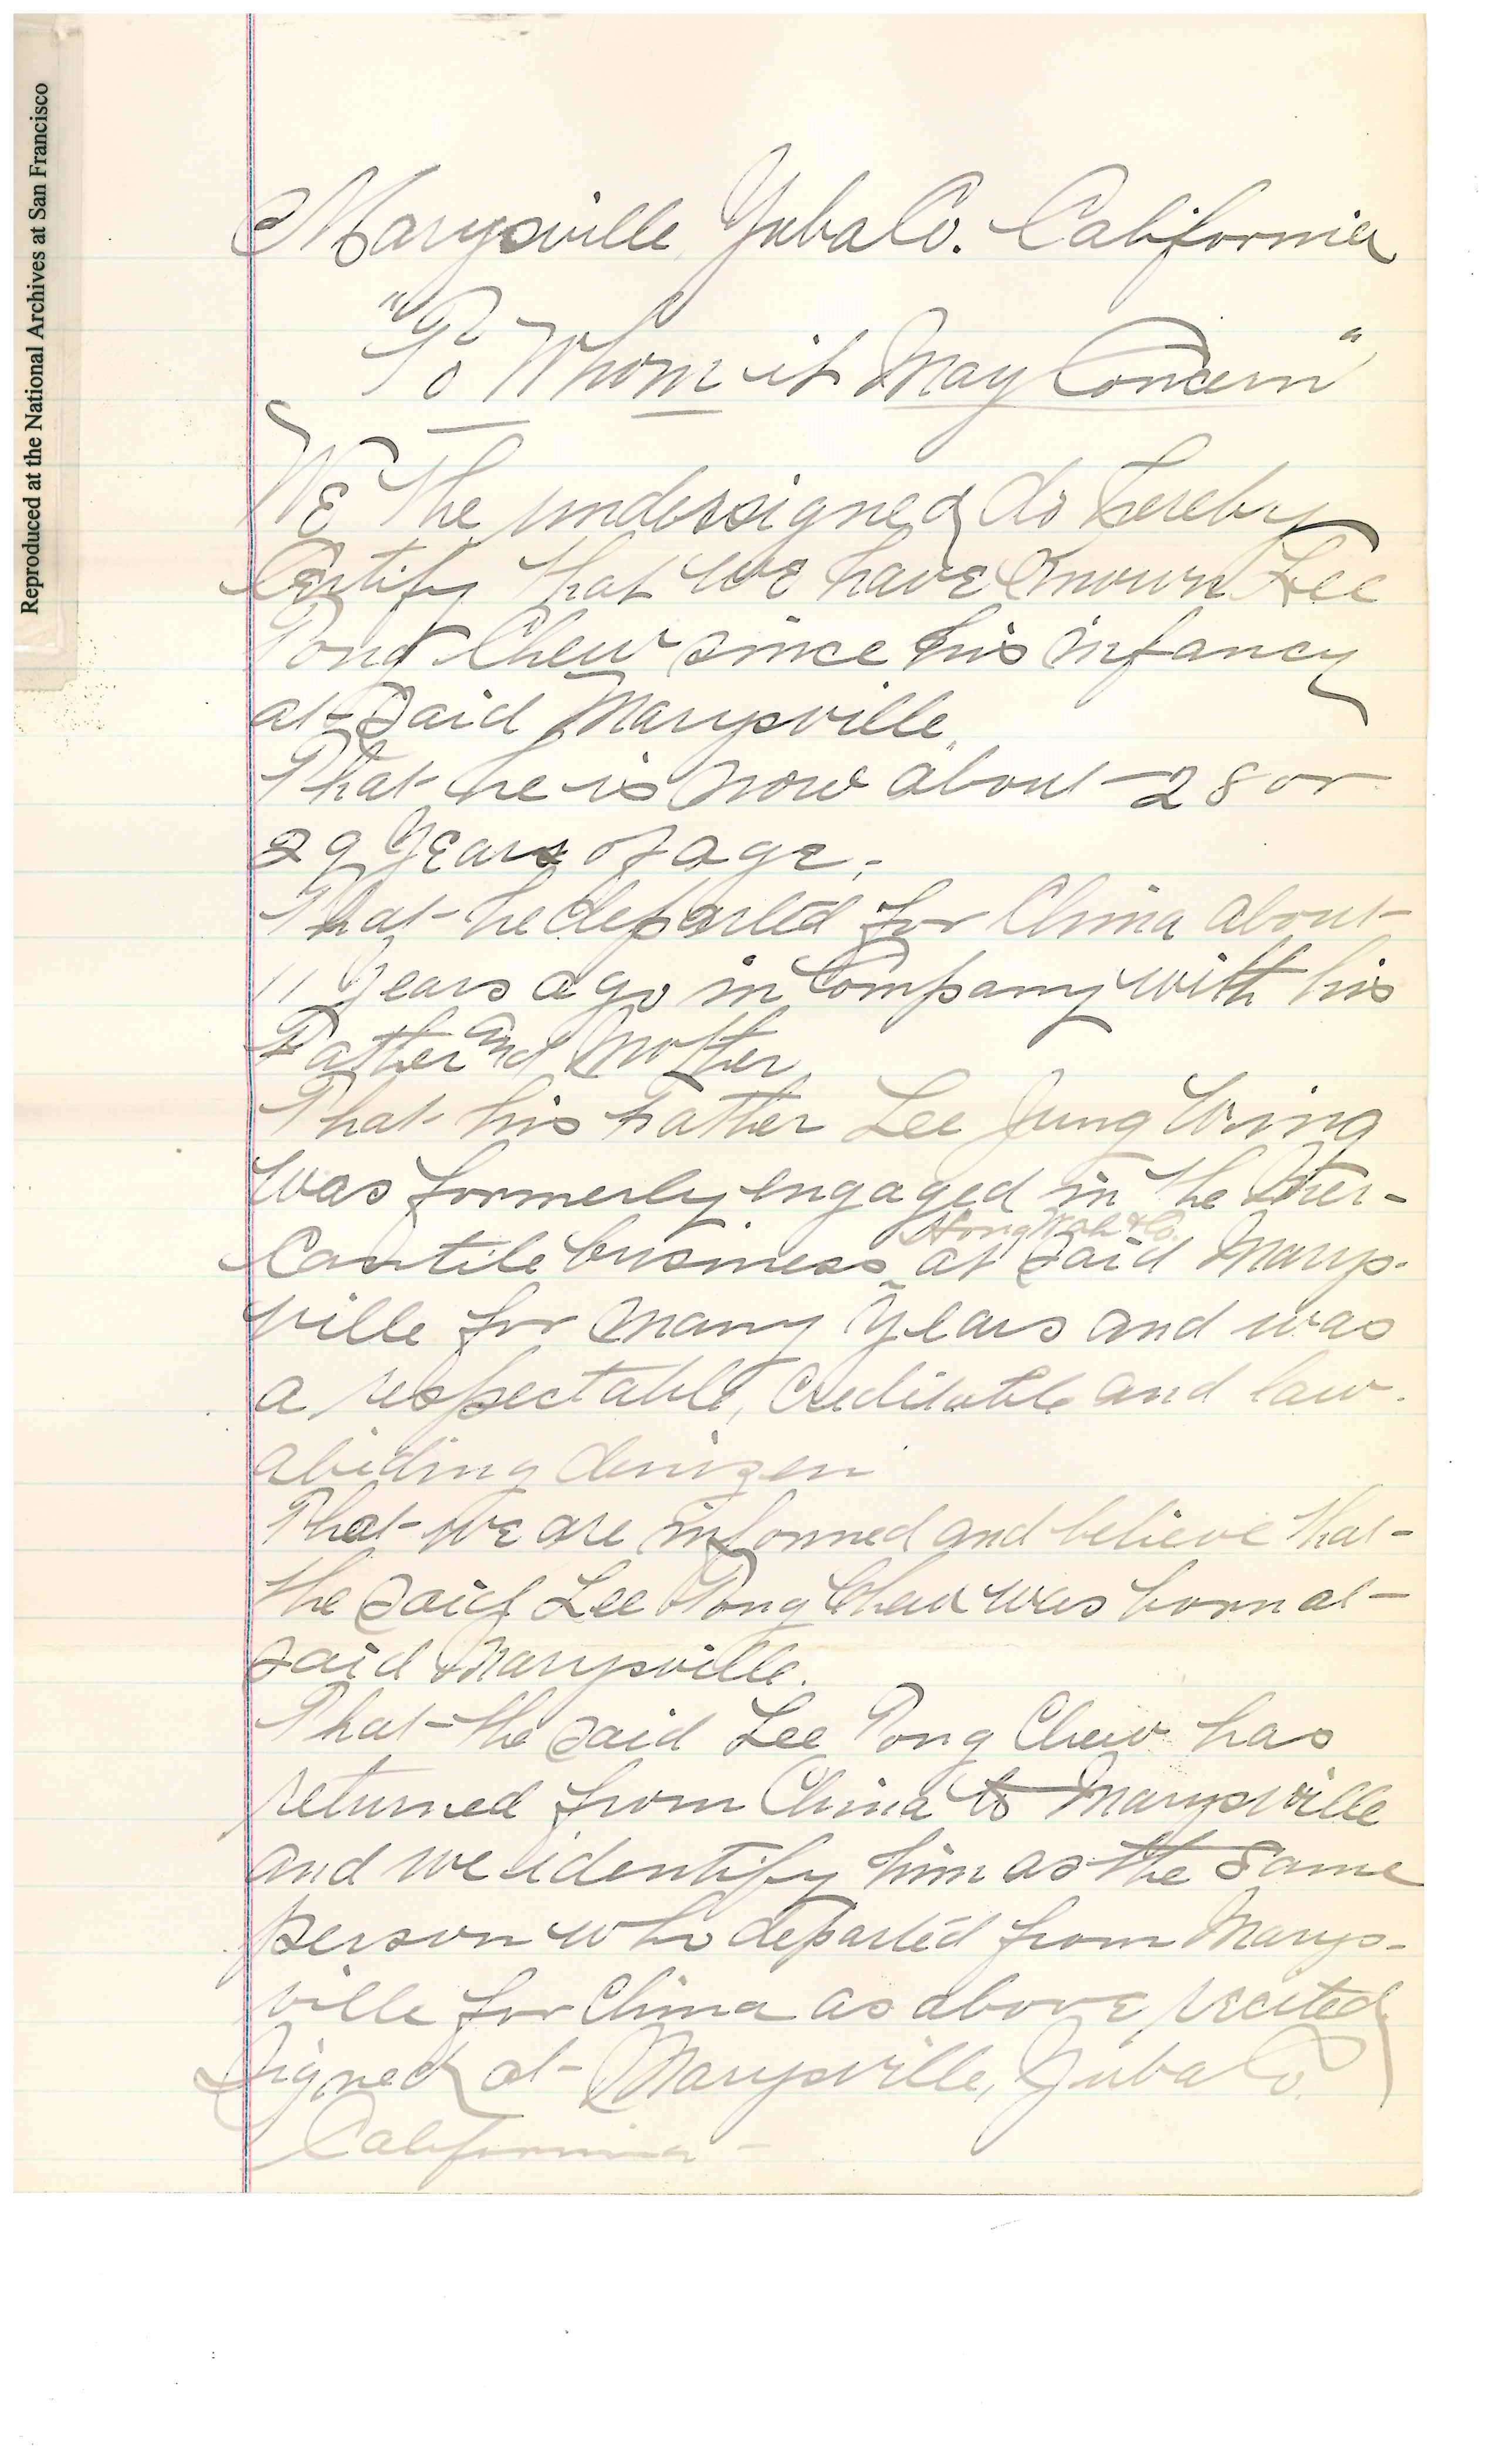 Reproduced at the National Archives at San Francisco
Marysville, Yuba Co. California
"To Whom it May Concern"
We the undersigned do hereby
Certify that we have Known Lee
Tong Chew since his infancy
at said Marysville.
That he is now about 28 or
29 years of age.
That he departed for China about
11 years ago in Company with his
Father and Mother
That his Father Lee Jung Wing
was formerly engaged in the Mer-
Hong Wah & Co.
cantile business at said Marys-
ville for many years and was
a respectable, creditable and law-
abiding denizen
That we are informed and believe that
the said Lee Tong Chew was born at
said Marysville.
That the said Lee Tong Chew has
returned from China to Marysville
and we identify him as the same
person who departed from Marys-
ville for China as above recited
Signed at Marysville, Yuba Co.
California -